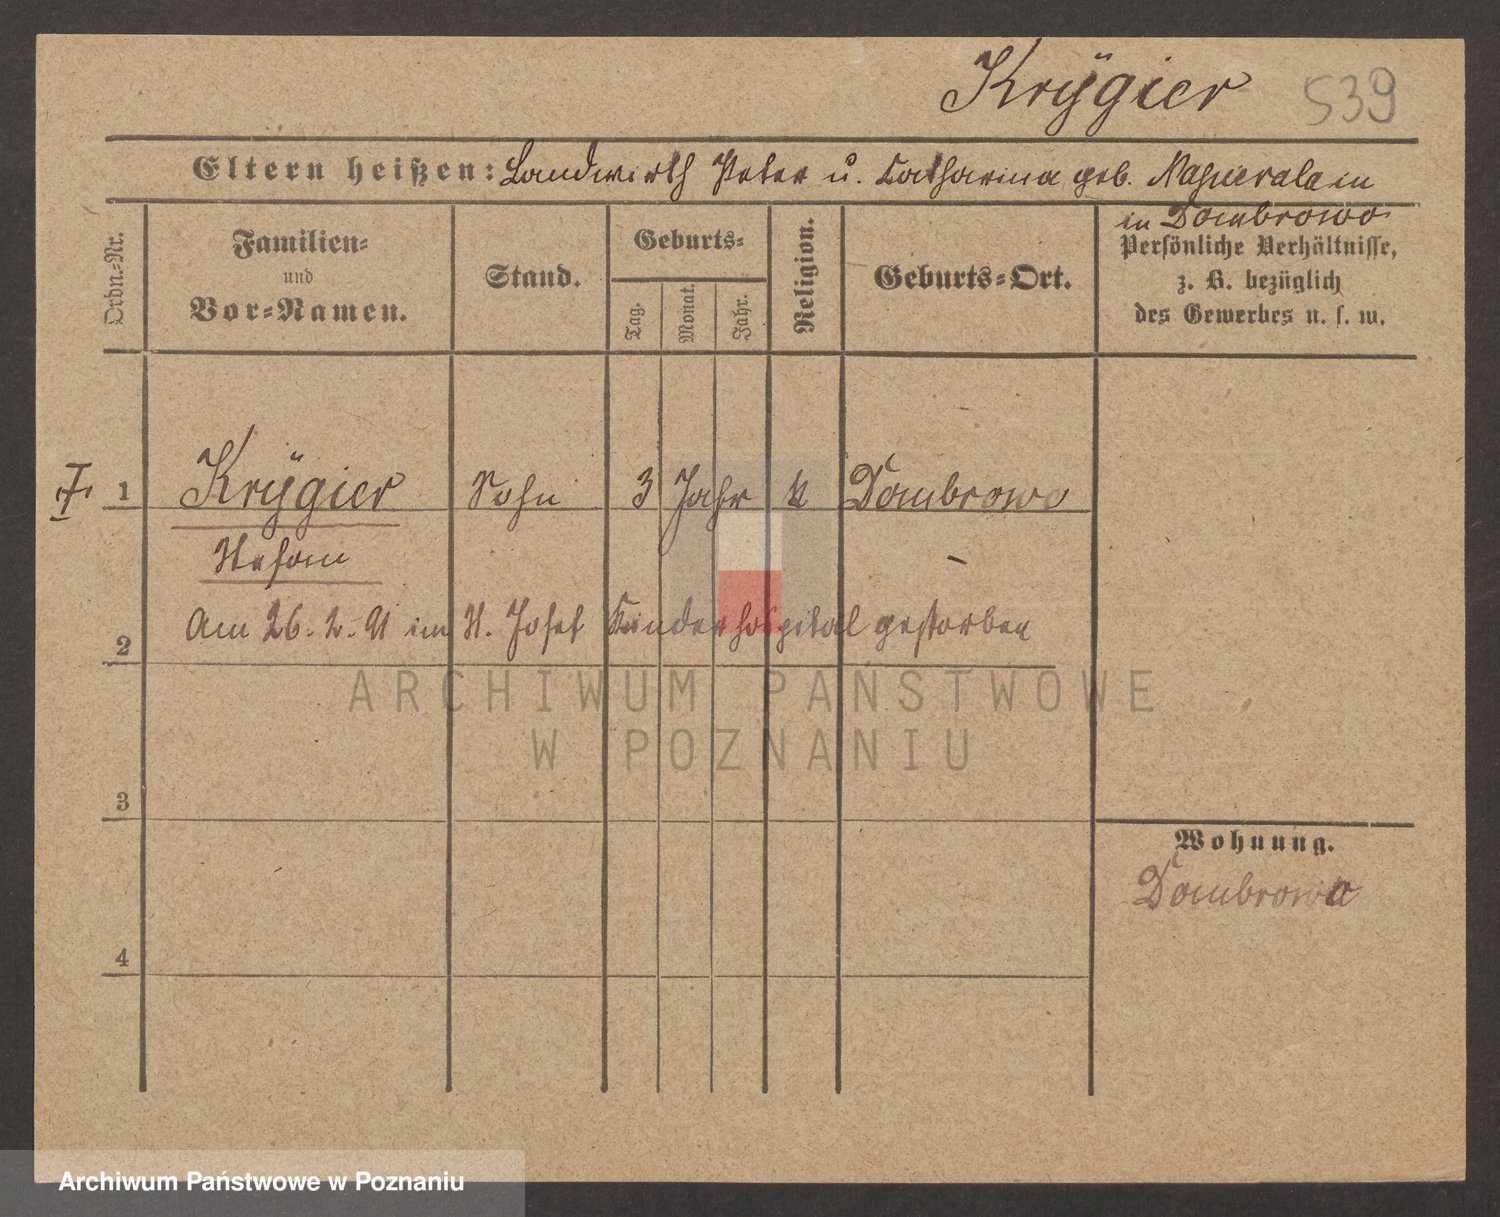 Krÿgier 539
Eltern heißen: Landwirth Peter u. Catharina geb. Napierala in
in Dombrowo
Ordn.=Nr.
Familien=
und
Vor=Namen.
Stand.
Geburts=
Tag.
Monat.
Jahr.
Religion.
Geburts=Ort.
Persönliche Verhältnisse,
z. B. bezüglich
des Gewerbes u. s. w.
1 Krÿgier Sohn 3 Jahr k Dombrowo
Stefan
2 Am 26. 2. 91 im St. Josef Kinderhospital gestorben
3
4
Wohnung.
Dombrowo
ARCHIWUM PAŃSTWOWE
W POZNANIU
Archiwum Państwowe w Poznaniu